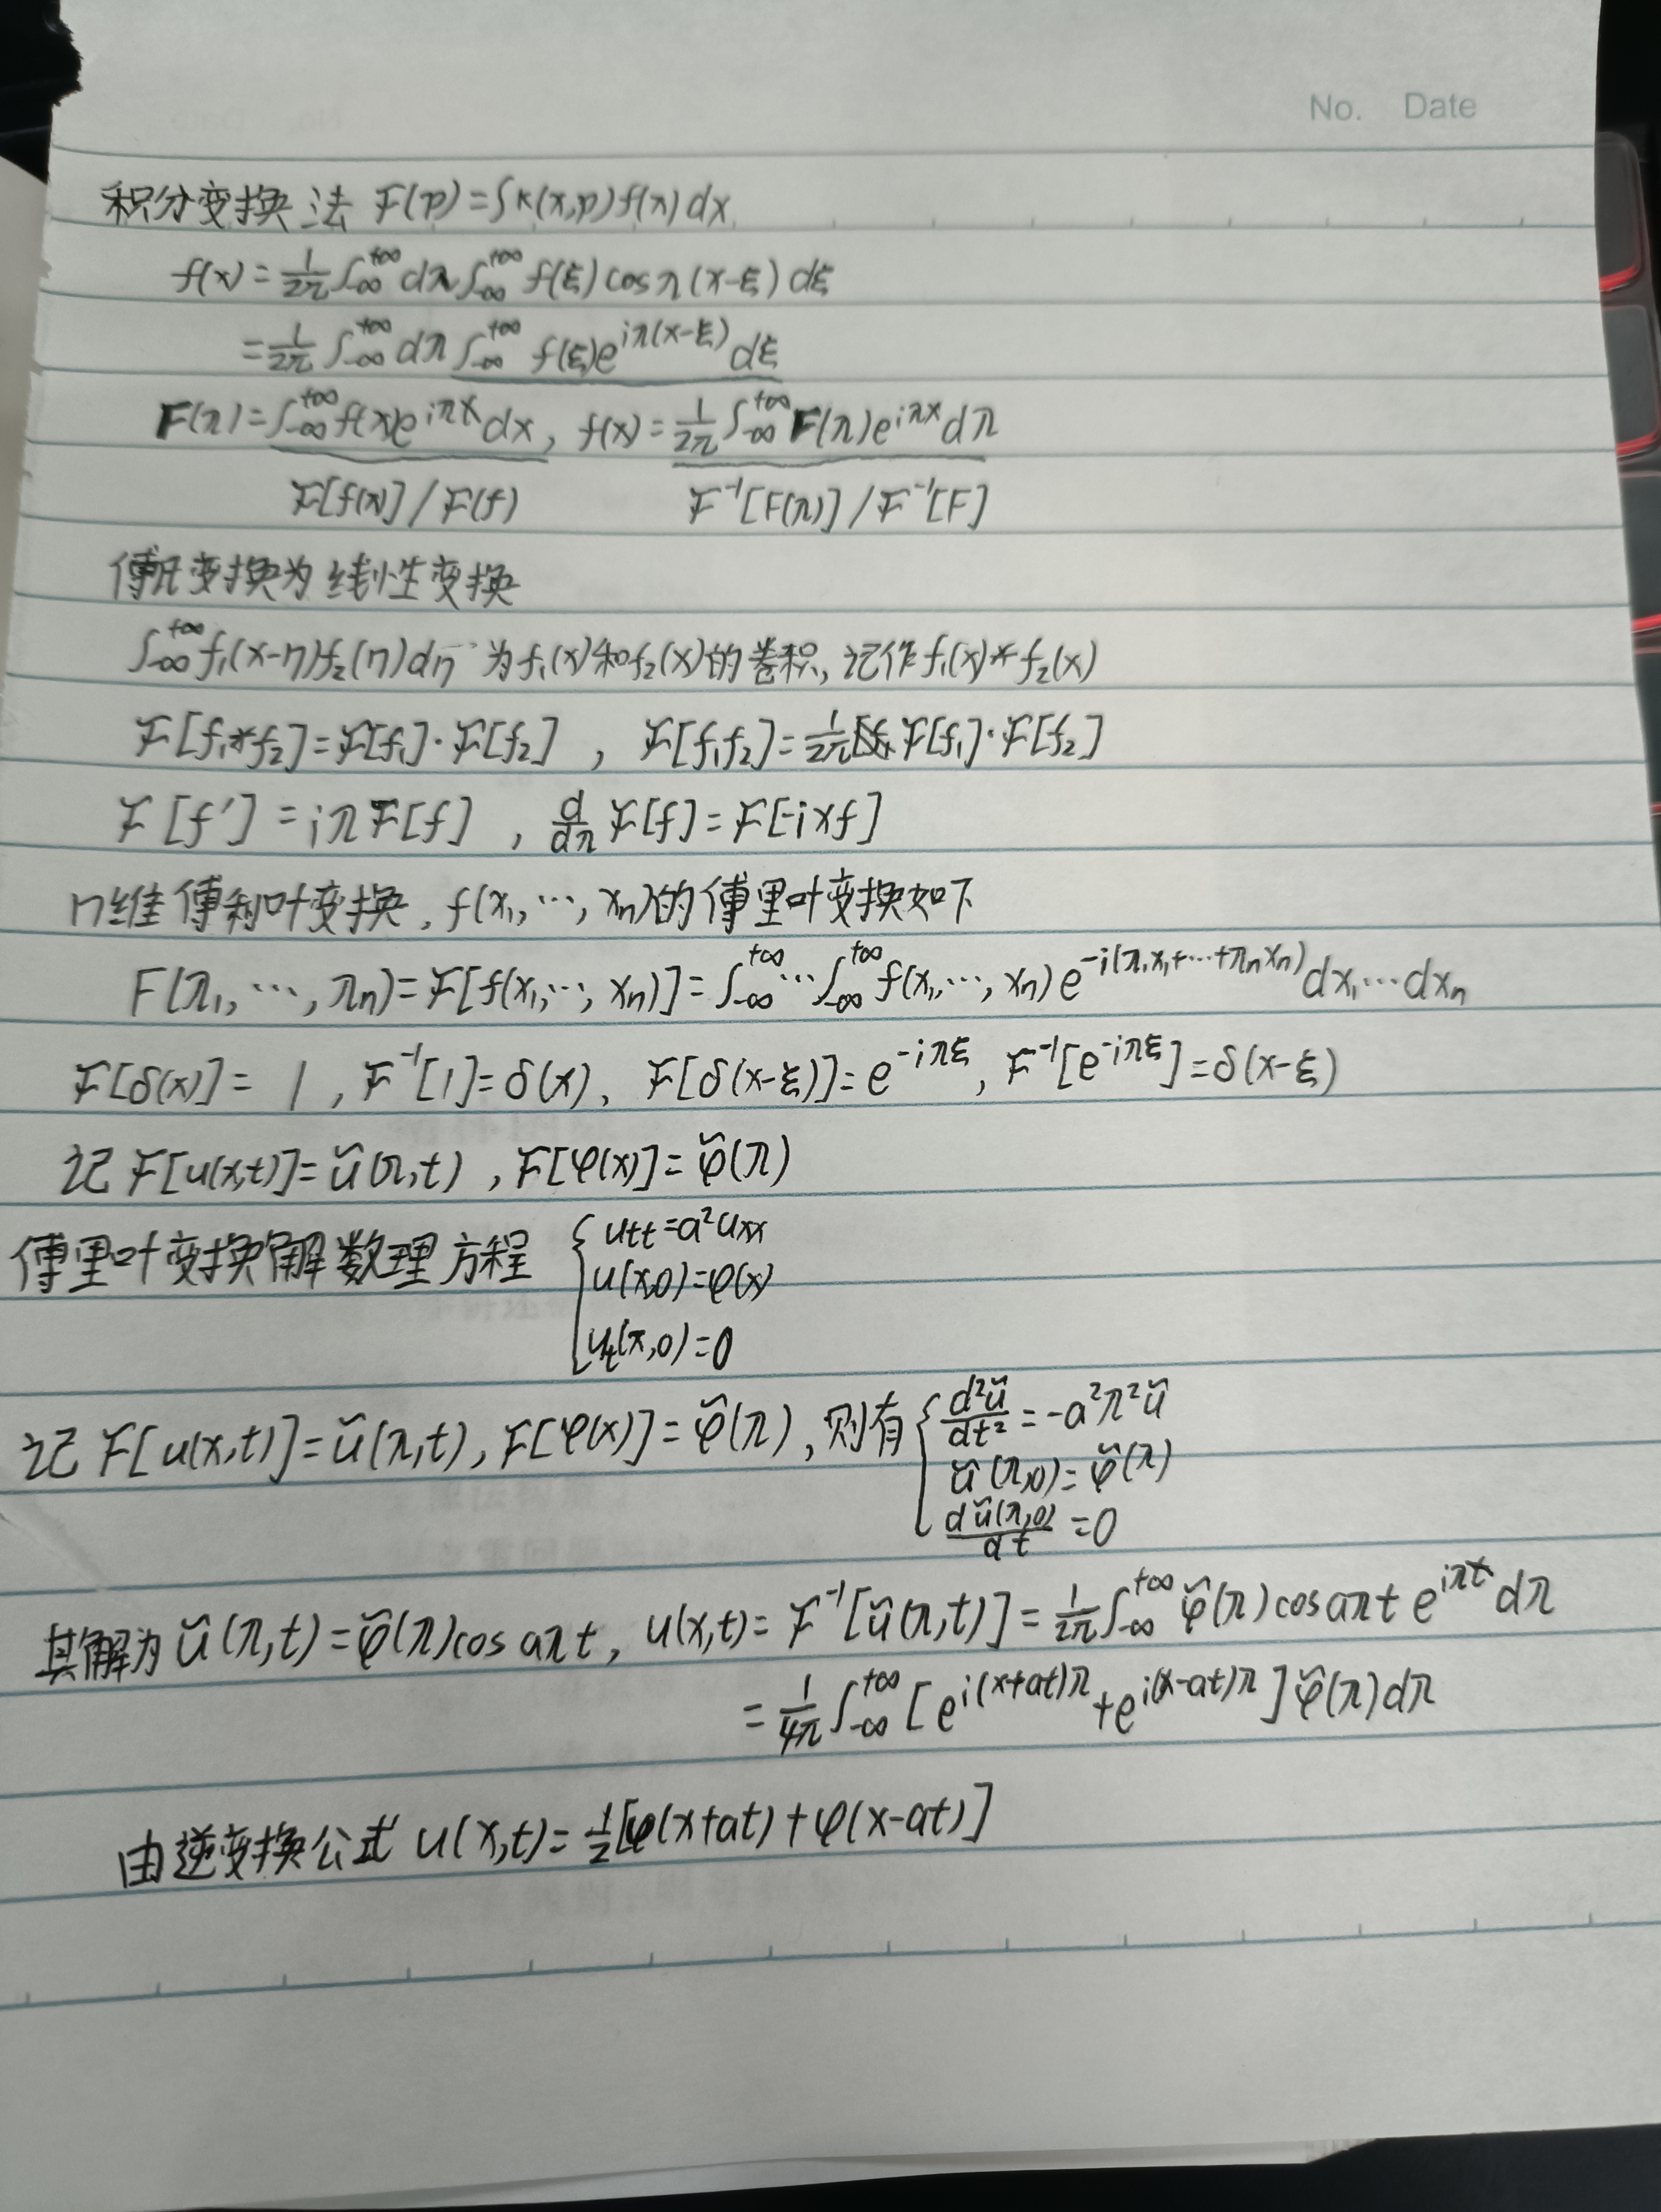 No. Date
积分变换法 F(p)=∫k(x,p)f(x)dx
f(x)=1/2π ∫_{-∞}^{+∞} dλ ∫_{-∞}^{+∞} f(ξ)cosλ(x-ξ)dξ
=1/2π ∫_{-∞}^{+∞} dλ ∫_{-∞}^{+∞} f(ξ)e^{iλ(x-ξ)}dξ
F(λ)=∫_{-∞}^{+∞} f(x)e^{iλx}dx, f(x)=1/2π ∫_{-∞}^{+∞} F(λ)e^{iλx}dλ
F[f(x)]/F(f) F^{-1}[F(λ)]/F^{-1}[F]
傅氏变换为线性变换
∫_{-∞}^{+∞} f₁(x-η)f₂(η)dη 为f₁(x)和f₂(x)的卷积,记作f₁(x)*f₂(x)
F[f₁*f₂]=F[f₁]·F[f₂], F[f₁f₂]=1/2π F[f₁]·F[f₂]
F[f']=iλF[f], d/dλ F[f]=F[-ixf]
n维傅利叶变换,f(x₁,…,xₙ)的傅里叶变换如下
F(λ₁,…,λₙ)=F[f(x₁,…,xₙ)]=∫_{-∞}^{+∞}…∫_{-∞}^{+∞} f(x₁,…,xₙ)e^{-i(λ₁x₁+…+λₙxₙ)}dx₁…dxₙ
F[δ(x)]=1, F^{-1}[1]=δ(x), F[δ(x-ξ)]=e^{-iλξ}, F^{-1}[e^{-iλξ}]=δ(x-ξ)
记F[u(x,t)]=ũ(λ,t), F[φ(x)]=φ̃(λ)
傅里叶变换解数理方程 { utt=a²uxx
u(x,0)=φ(x)
ut(x,0)=0
记F[u(x,t)]=ũ(λ,t), F[φ(x)]=φ̃(λ), 则有 { d²ũ/dt²=-a²λ²ũ
ũ(λ,0)=φ̃(λ)
dũ(λ,0)/dt=0
其解为ũ(λ,t)=φ̃(λ)cosaλt, u(x,t)=F^{-1}[ũ(λ,t)]=1/2π ∫_{-∞}^{+∞} φ̃(λ)cosaλt e^{iλx}dλ
=1/4π ∫_{-∞}^{+∞} [e^{i(x+at)λ}+e^{i(x-at)λ}]φ̃(λ)dλ
由逆变换公式 u(x,t)=1/2[φ(x+at)+φ(x-at)]